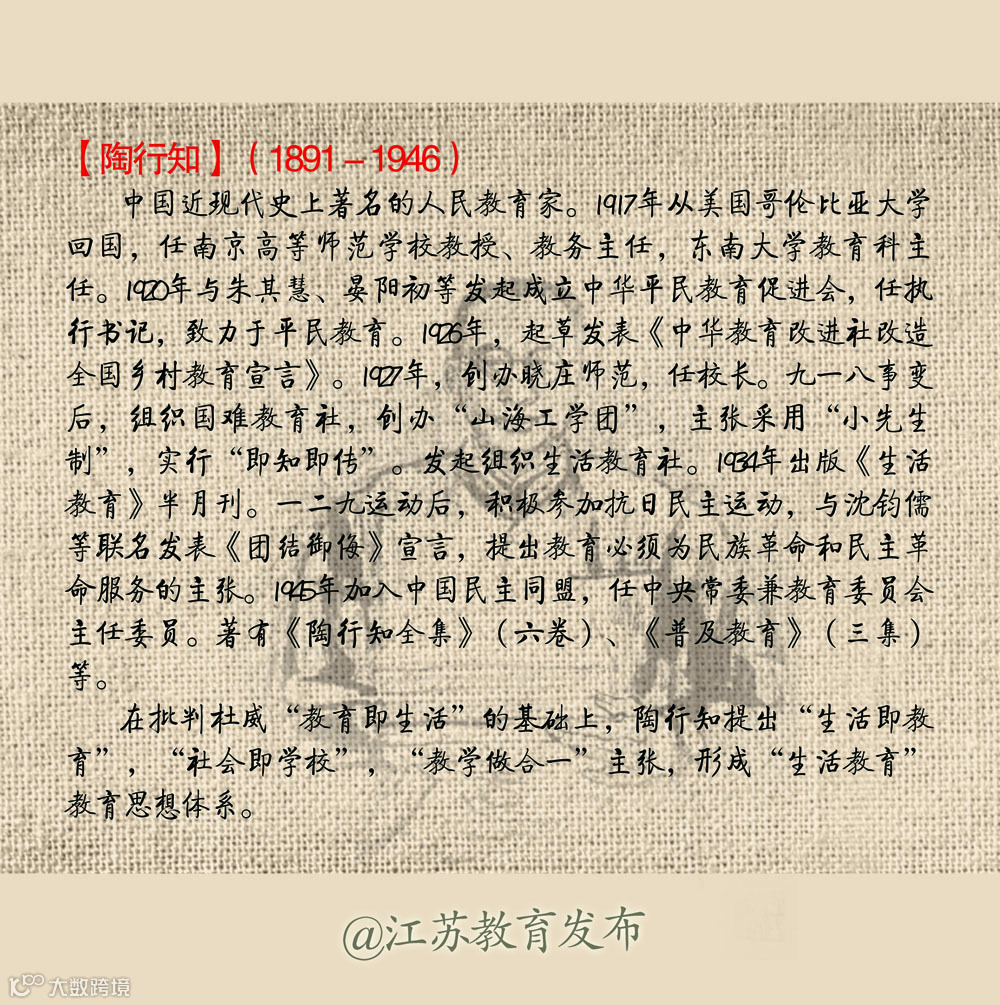 【陶行知】（1891－1946）
中国近现代史上著名的人民教育家。1917年从美国哥伦比亚大学
回国，任南京高等师范学校教授、教务主任，东南大学教育科主
任。1920年与朱其慧、晏阳初等发起成立中华平民教育促进会，任执
行书记，致力于平民教育。1926年，起草发表《中华教育改进社改造
全国乡村教育宣言》。1927年，创办晓庄师范，任校长。九一八事变
后，组织国难教育社，创办“山海工学团”，主张采用“小先生
制”，实行“即知即传”。发起组织生活教育社。1934年出版《生活
教育》半月刊。一二九运动后，积极参加抗日民主运动，与沈钧儒
等联名发表《团结御侮》宣言，提出教育必须为民族革命和民主革
命服务的主张。1945年加入中国民主同盟，任中央常委兼教育委员会
主任委员。著有《陶行知全集》（六卷）、《普及教育》（三集）
等。
在批判杜威“教育即生活”的基础上，陶行知提出“生活即教
育”，“社会即学校”，“教学做合一”主张，形成“生活教育”
教育思想体系。
@江苏教育发布
大数跨境